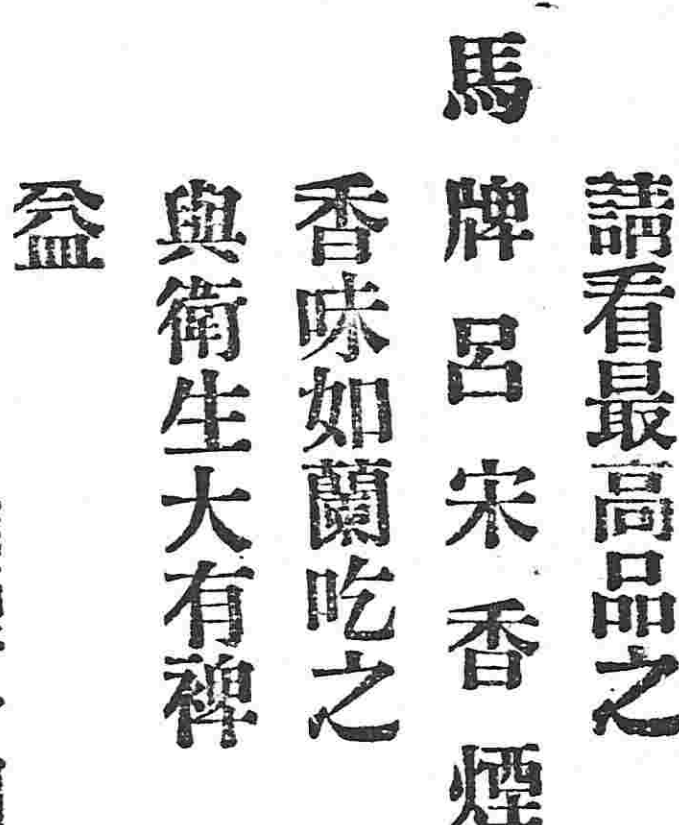 請看最高品之
馬牌呂宋香煙
香味如蘭吃之
與衛生大有裨
益